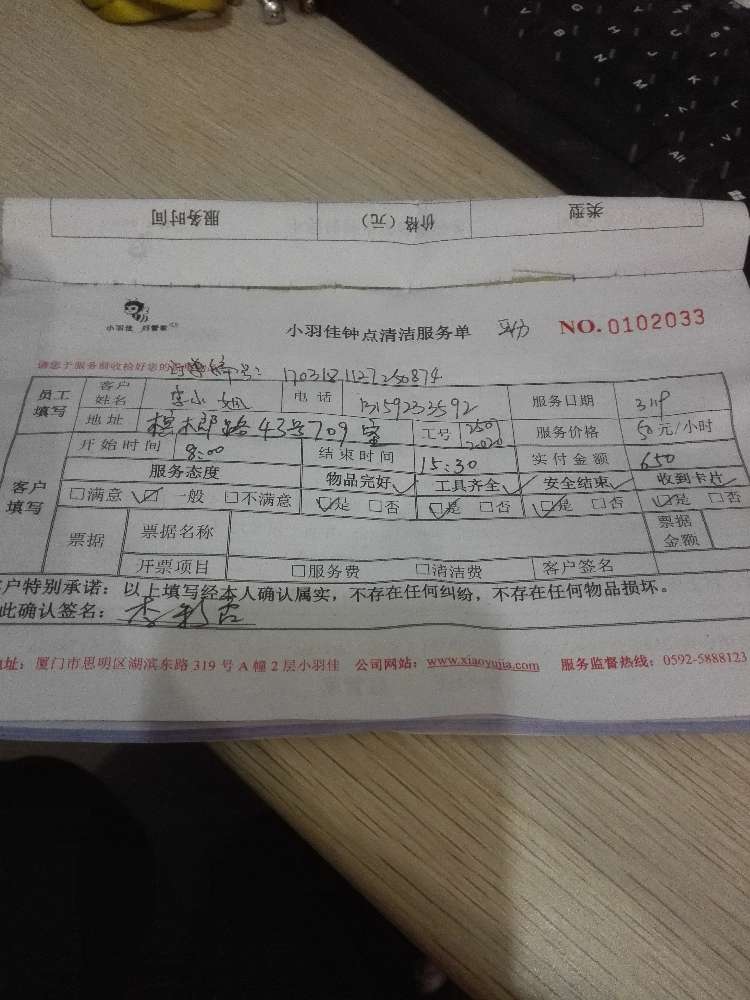 服务时间 价格（元） 类型
小羽佳 好管家
小羽佳钟点清洁服务单 NO.0102033
请您于服务前收检好您的 编号：1703181127250874
员工填写 客户姓名 李小姐 电话 13159233592 服务日期 3.19
地址 槟榔路43号709室 工号 服务价格 50元/小时
客户填写 开始时间 8:00 结束时间 15:30 实付金额 650
服务态度 物品完好 工具齐全 安全结束 收到卡片
□满意 ☑一般 □不满意 ☑是 □否 ☑是 □否 ☑是 □否 ☑是 □否
票据 票据名称 票据金额
开票项目 □服务费 □清洁费 客户签名
户特别承诺：以上填写经本人确认属实，不存在任何纠纷，不存在任何物品损坏。
此确认签名：
址：厦门市思明区湖滨东路319号A幢2层小羽佳 公司网站：www.xiaoyujia.com 服务监督热线：0592-5888123